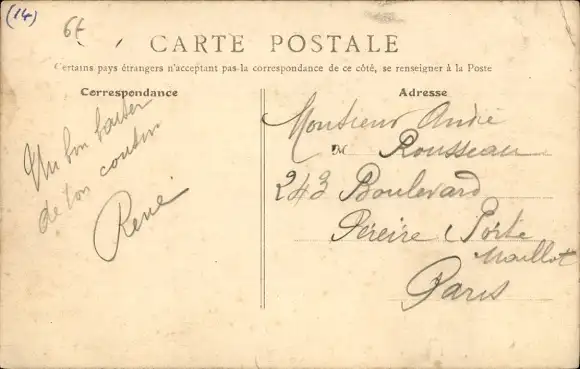 (14)
6€
CARTE POSTALE
Certains pays étrangers n'acceptant pas la correspondance de ce côté, se renseigner à la Poste
Correspondance
Adresse
Un bon baiser
de ton cousin
René
Monsieur André
M Rousseau
243 Boulevard
Péreire (Porte
Maillot
Paris